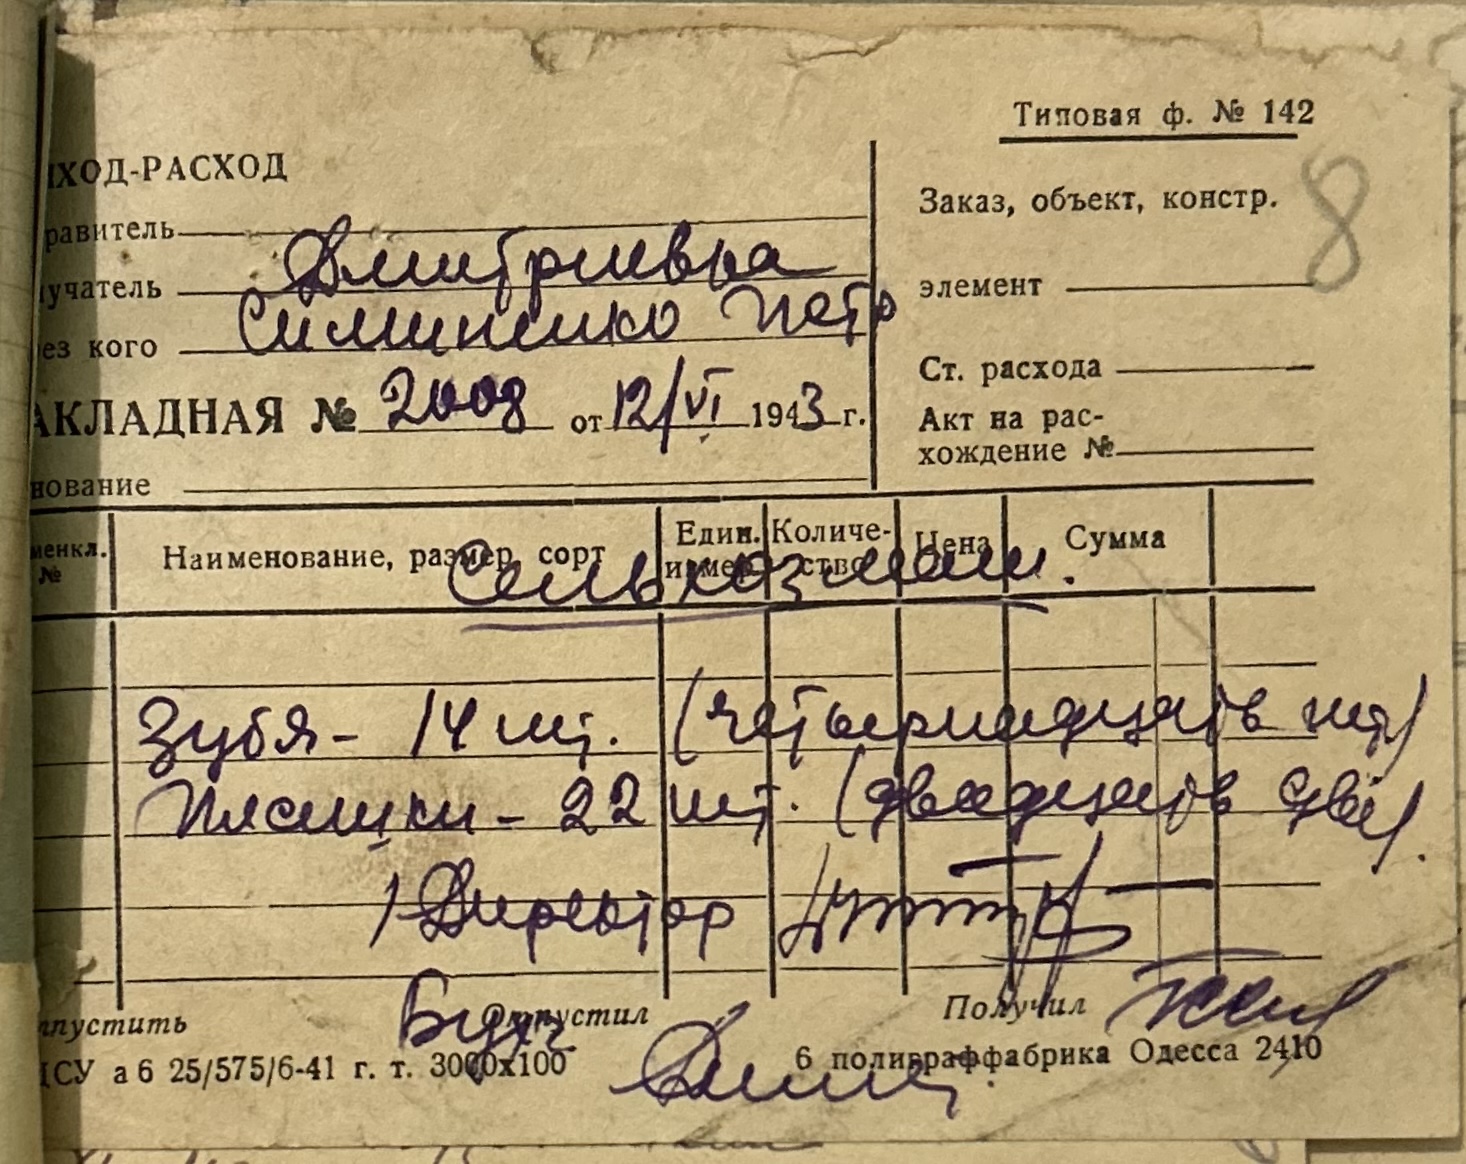 Типовая ф. № 142
ХОД-РАСХОД
8
равитель
Заказ, объект, констр.
Дмитриевка
учатель
элемент
Симиненко Петр
ез кого
Ст. расхода
АКЛАДНАЯ № 2008 от 12/VI 1943 г.
Акт на рас-
хождение №
нование
менкл. №
Наименование, размер, сорт
Един. измер.
Количе-
ство
Цена
Сумма
Сельхозмаш.
Зубя - 14 шт. (четырнадцать шт)
22 шт. (двадцать две).
Директор
Бух
пустить
Отпустил
Получил
СУ аб 25/575/6-41 г. т. 3000х100
6 полиграффабрика Одесса 2410